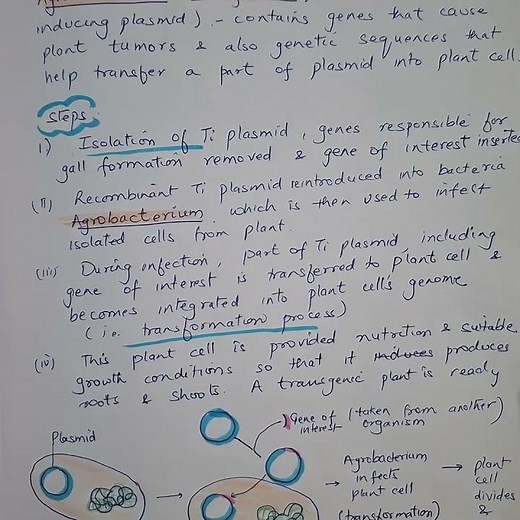 inducing plasmid). - contains genes that cause
plant tumors & also genetic sequences that
help transfer a part of plasmid into plant cell.
Steps
i) Isolation of Ti plasmid, genes responsible for
gall formation removed & gene of interest inserted
(ii) Recombinant Ti plasmid reintroduced into bacteria
Agrobacterium. which is then used to infect
isolated cells from plant.
(iii) During infection, part of Ti plasmid, including
gene of interest is transferred to plant cell &
becomes integrated into plant cell's genome
(i.e. transformation process)
(iv) This plant cell is provided nutrition & suitable
growth conditions so that it produces
roots & shoots. A transgenic plant is ready
Gene of interest (taken from another organism)
Plasmid
Agrobacterium
infects
plant cell
(transformation)
plant
cell
divides
&